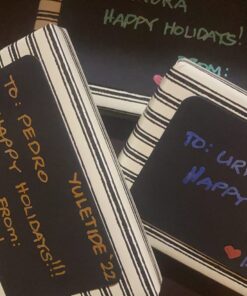 HAPPY HOLIDAYS!
FROM:
TO: PEDRO
HAPPY HOLIDAYS!!!
FROM:
YULETIDE '22
TO:
HAPPY